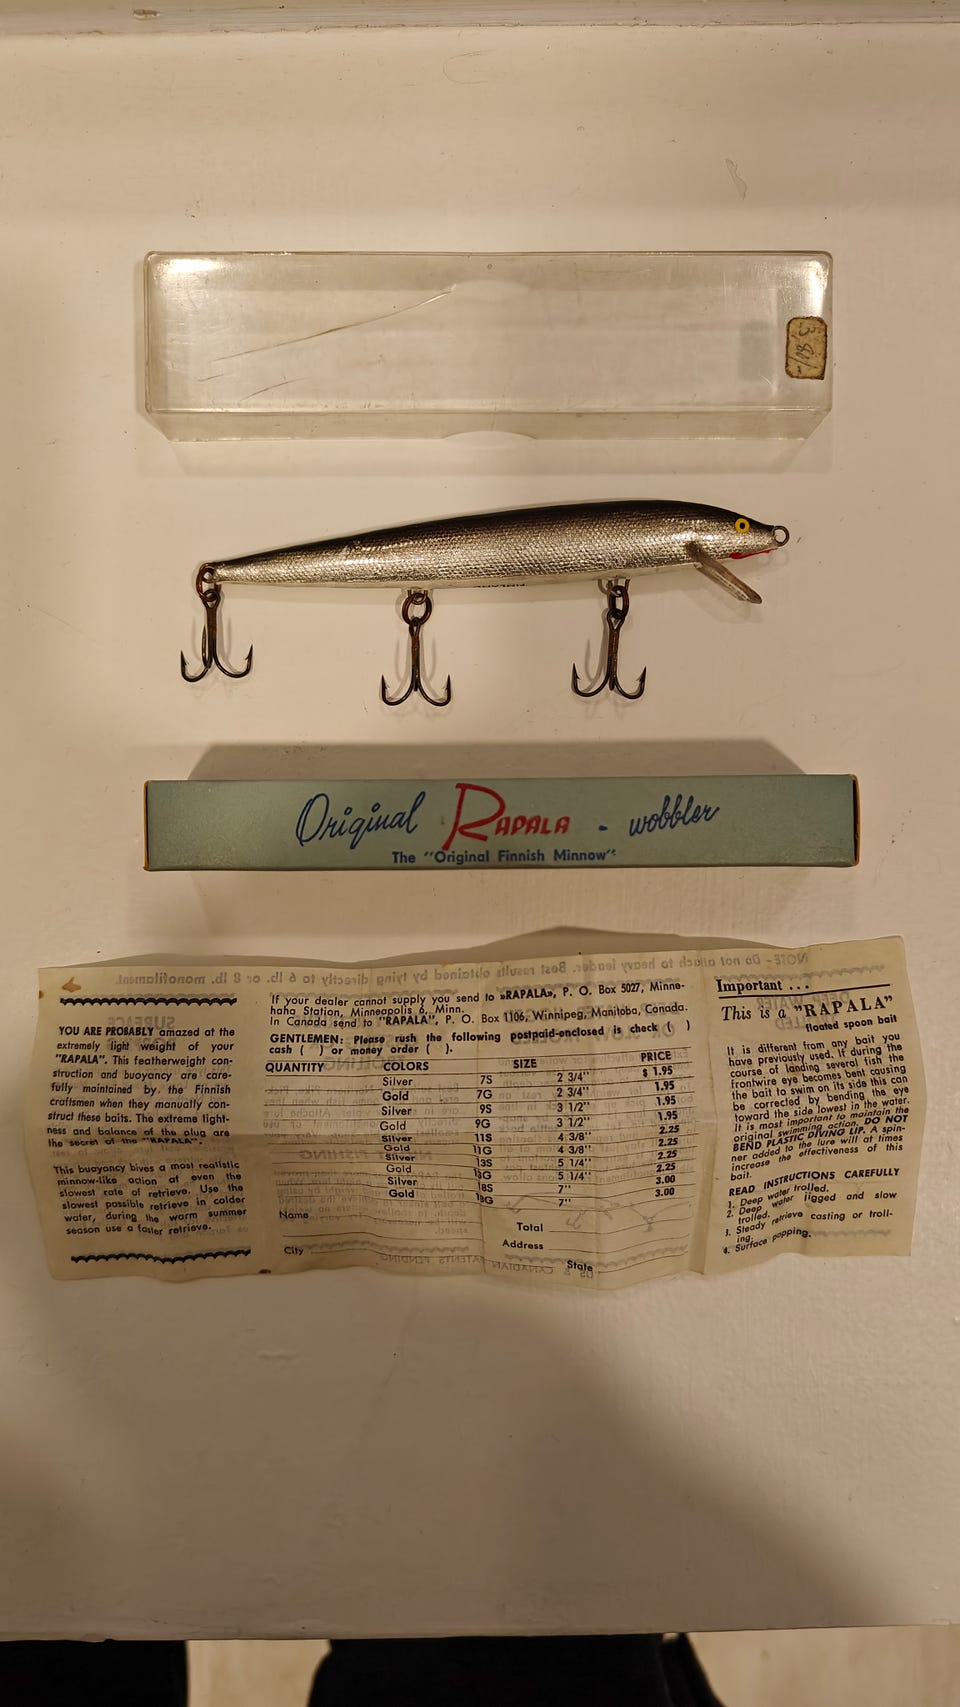 3 80/m
FINLAND
Original RAPALA - wobbler
The "Original Finnish Minnow"
NOTE- Do not attach to heavy leader. Best results obtained by tying directly to 6 lb. or 8 lb. monofilament.
YOU ARE PROBABLY amazed at the
extremely light weight of your
"RAPALA". This featherweight con-
struction and buoyancy are care-
fully maintained by the Finnish
craftsmen when they manually con-
struct these baits. The extreme light-
ness and balance of the plug are
the secret of the "RAPALA".
This buoyancy bives a most realistic
minnow-like action at even the
slowest rate of retrieve. Use the
slowest possible retrieve in colder
water, during the warm summer
season use a faster retrieve.
If your dealer cannot supply you send to »RAPALA», P. O. Box 5027, Minne-
haha Station, Minneapolis 6, Minn.
In Canada send to "RAPALA", P. O. Box 1106, Winnipeg, Manitoba, Canada.
GENTLEMEN: Please rush the following postpaid-enclosed is check ( )
cash ( ) or money order ( ).
QUANTITY COLORS SIZE PRICE
Silver 7S 2 3/4" $ 1.95
Gold 7G 2 3/4" 1.95
Silver 9S 3 1/2" 1.95
Gold 9G 3 1/2" 1.95
Silver 11S 4 3/8" 2.25
Gold 11G 4 3/8" 2.25
Silver 13S 5 1/4" 2.25
Gold 13G 5 1/4" 2.25
Silver 18S 7" 3.00
Gold 18G 7" 3.00
Total
Name
Address
City State
US & CANADIAN PATENTS PENDING
Important ...
This is a "RAPALA"
floated spoon bait
It is different from any bait you
have previously used. If during the
course of landing several fish the
frontwire eye becomes bent causing
the bait to swim on its side this can
be corrected by bending the eye
toward the side lowest in the water.
It is most important to maintain the
original swimming action. DO NOT
BEND PLASTIC DIVING LIP. A spin-
ner added to the lure will at times
increase the effectiveness of this
bait.
READ INSTRUCTIONS CAREFULLY
1. Deep water trolled.
2. Deep water jigged and slow
trolled.
3. Steady retrieve casting or troll-
ing.
4. Surface popping.